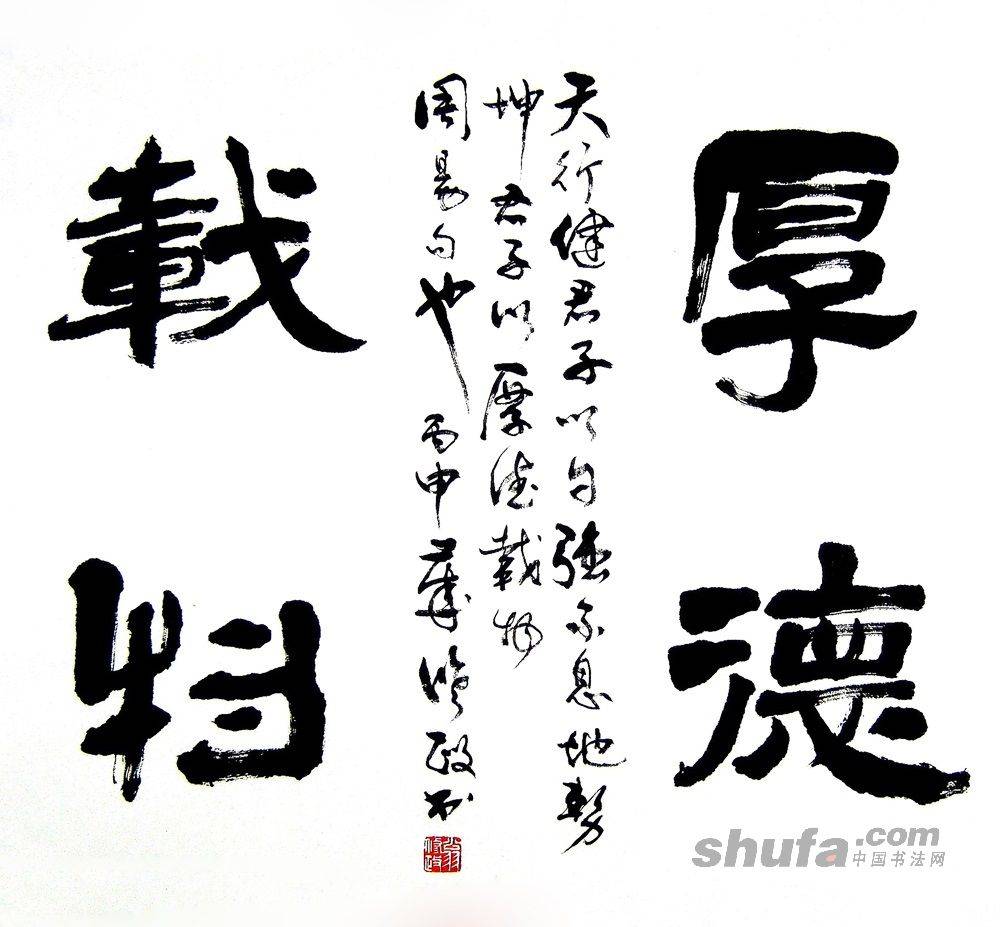 厚德
載物
天行健君子以自強不息地勢
坤君子以厚德載物
周易句也丙申
shufa.com
中国书法网